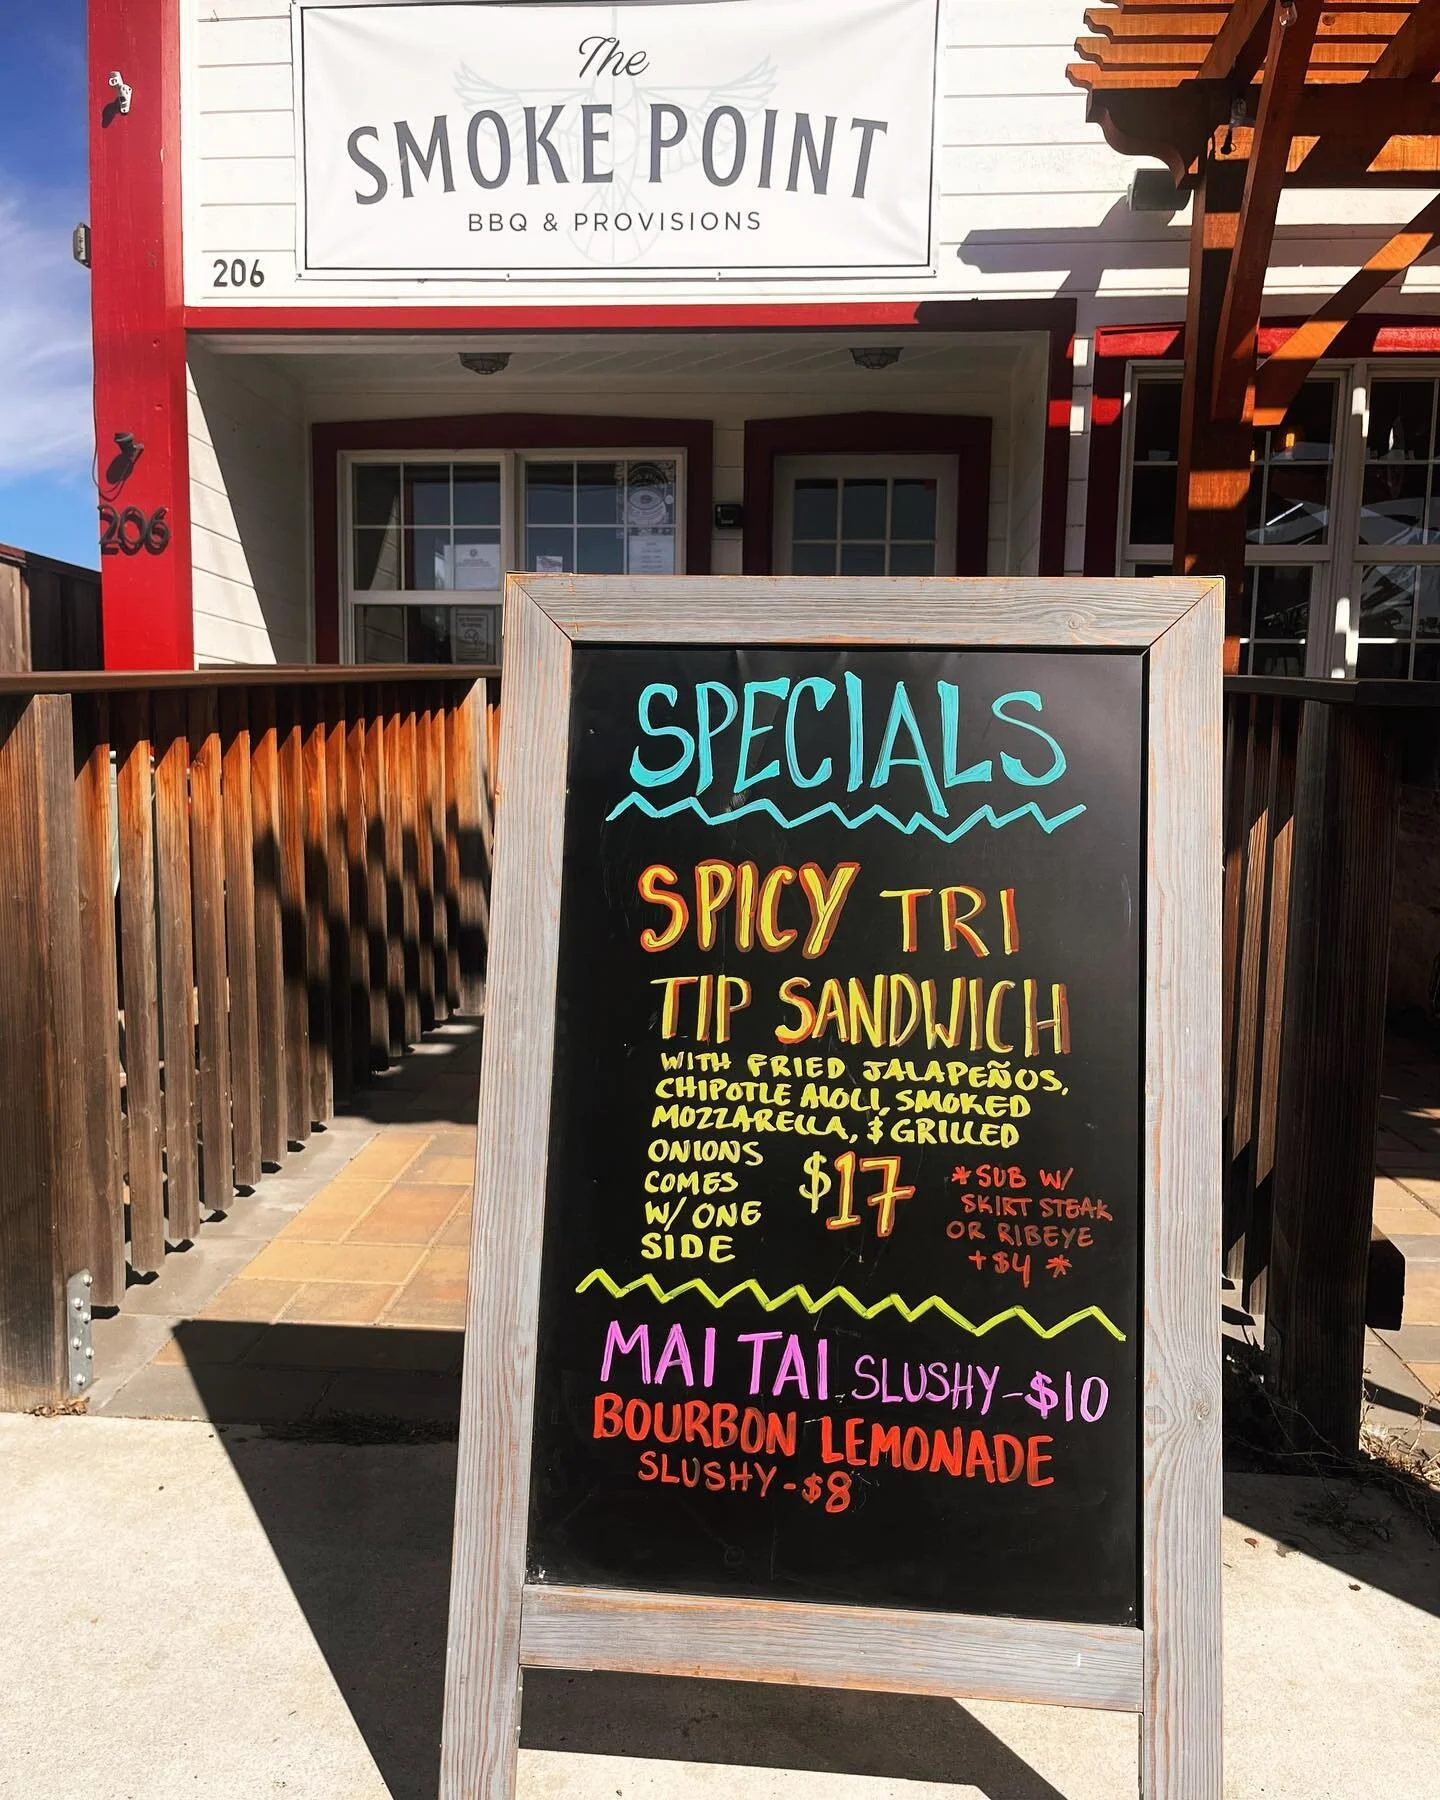 The
SMOKE POINT
BBQ & PROVISIONS
206
206
SPECIALS
SPICY TRI
TIP SANDWICH
WITH FRIED JALAPEÑOS,
CHIPOTLE AIOLI, SMOKED
MOZZARELLA, & GRILLED
ONIONS
COMES
W/ ONE
SIDE
$17
*SUB W/
SKIRT STEAK
OR RIBEYE
+$4 *
MAI TAI SLUSHY-$10
BOURBON LEMONADE
SLUSHY-$8